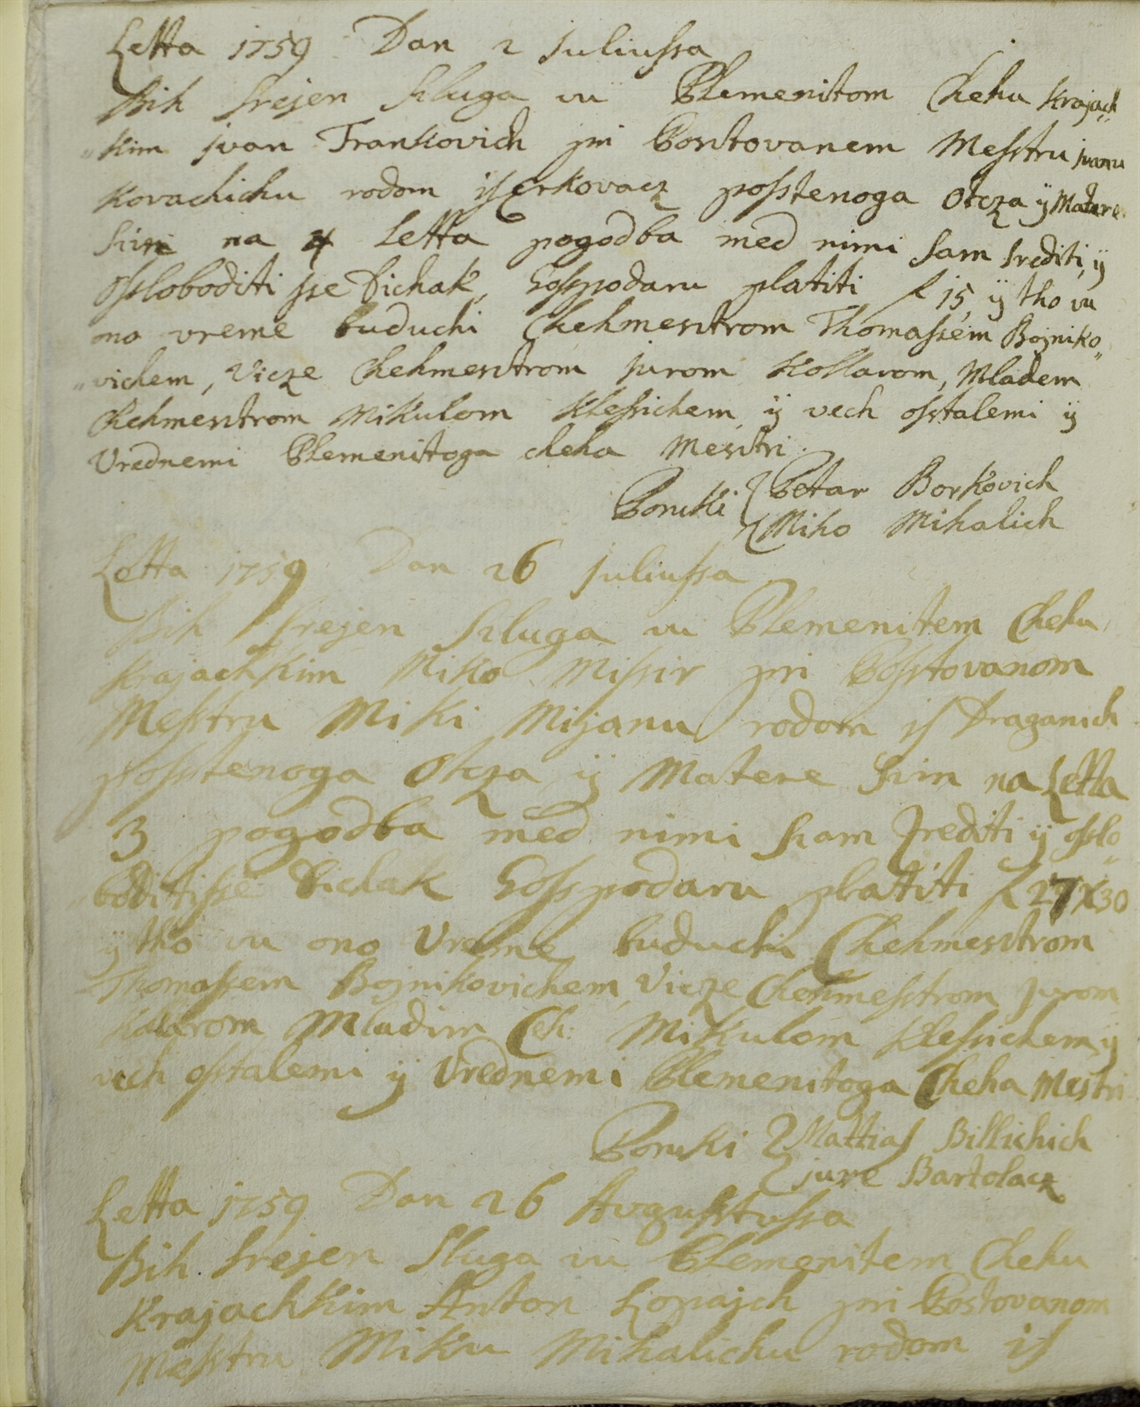 Letta 1759 Dan 2 Juliussa
Bih srejen Szluga vu Plemenitom Chehu Krajach„
„kim jvan Frankovich pri Postovanem Messtru jvanu
Kovachichu rodom is Cerkovacz posstenoga Otcza ÿ Matere
szin na 4 Letta pogodba med nimi sam srediti ÿ
Osloboditi sse Dichak, Gosspodaru platiti f 15, ÿ tho vu
ono vreme buduchi Chehmestrom Thomassem Bojniko„
„vichem, Vicze Chehmestrom jurom Kollarom, Mladem
Chehmestrom Mikulom Klessichem ÿ vech ostalemi ÿ
Vrednemi Plemenitoga cheha Mestri.
Poruki { Petar Borkovich
{ Miko Mihalich
Letta 1759 Dan 26 Juliussa
Bih srejen szluga vu Plemenitem Chehu
Krajachkim Miko Missir pri Posstovanom
Messtru Miki Mijanu rodom is Draganich
posstenoga Otcza ÿ Matere szin na Letta
3 pogodba med nimi szam srediti ÿ oslo„
„boditisse Dichak Gosspodaru plattiti f 27 x 30
ÿ tho vu ono Vreme buduchi Chehmestrom
Thomassem Bojnikovichem Vicze Chehmesstrom jurom
Kollarom Mladim Ceh: Mikulom Klessichem ÿ
vech ostalemi ÿ Vrednemi Plemenitoga Cheha Mestri
Poruki { Mattias Billichich
{ jure Bartolacz
Letta 1759 Dan 26 Avgusstussa
Bih srejen Sluga vu Plemenitem Chehu
Krajachkim Anton Lopajch pri Postovanom
Messtru Miku Mihalichu rodom is